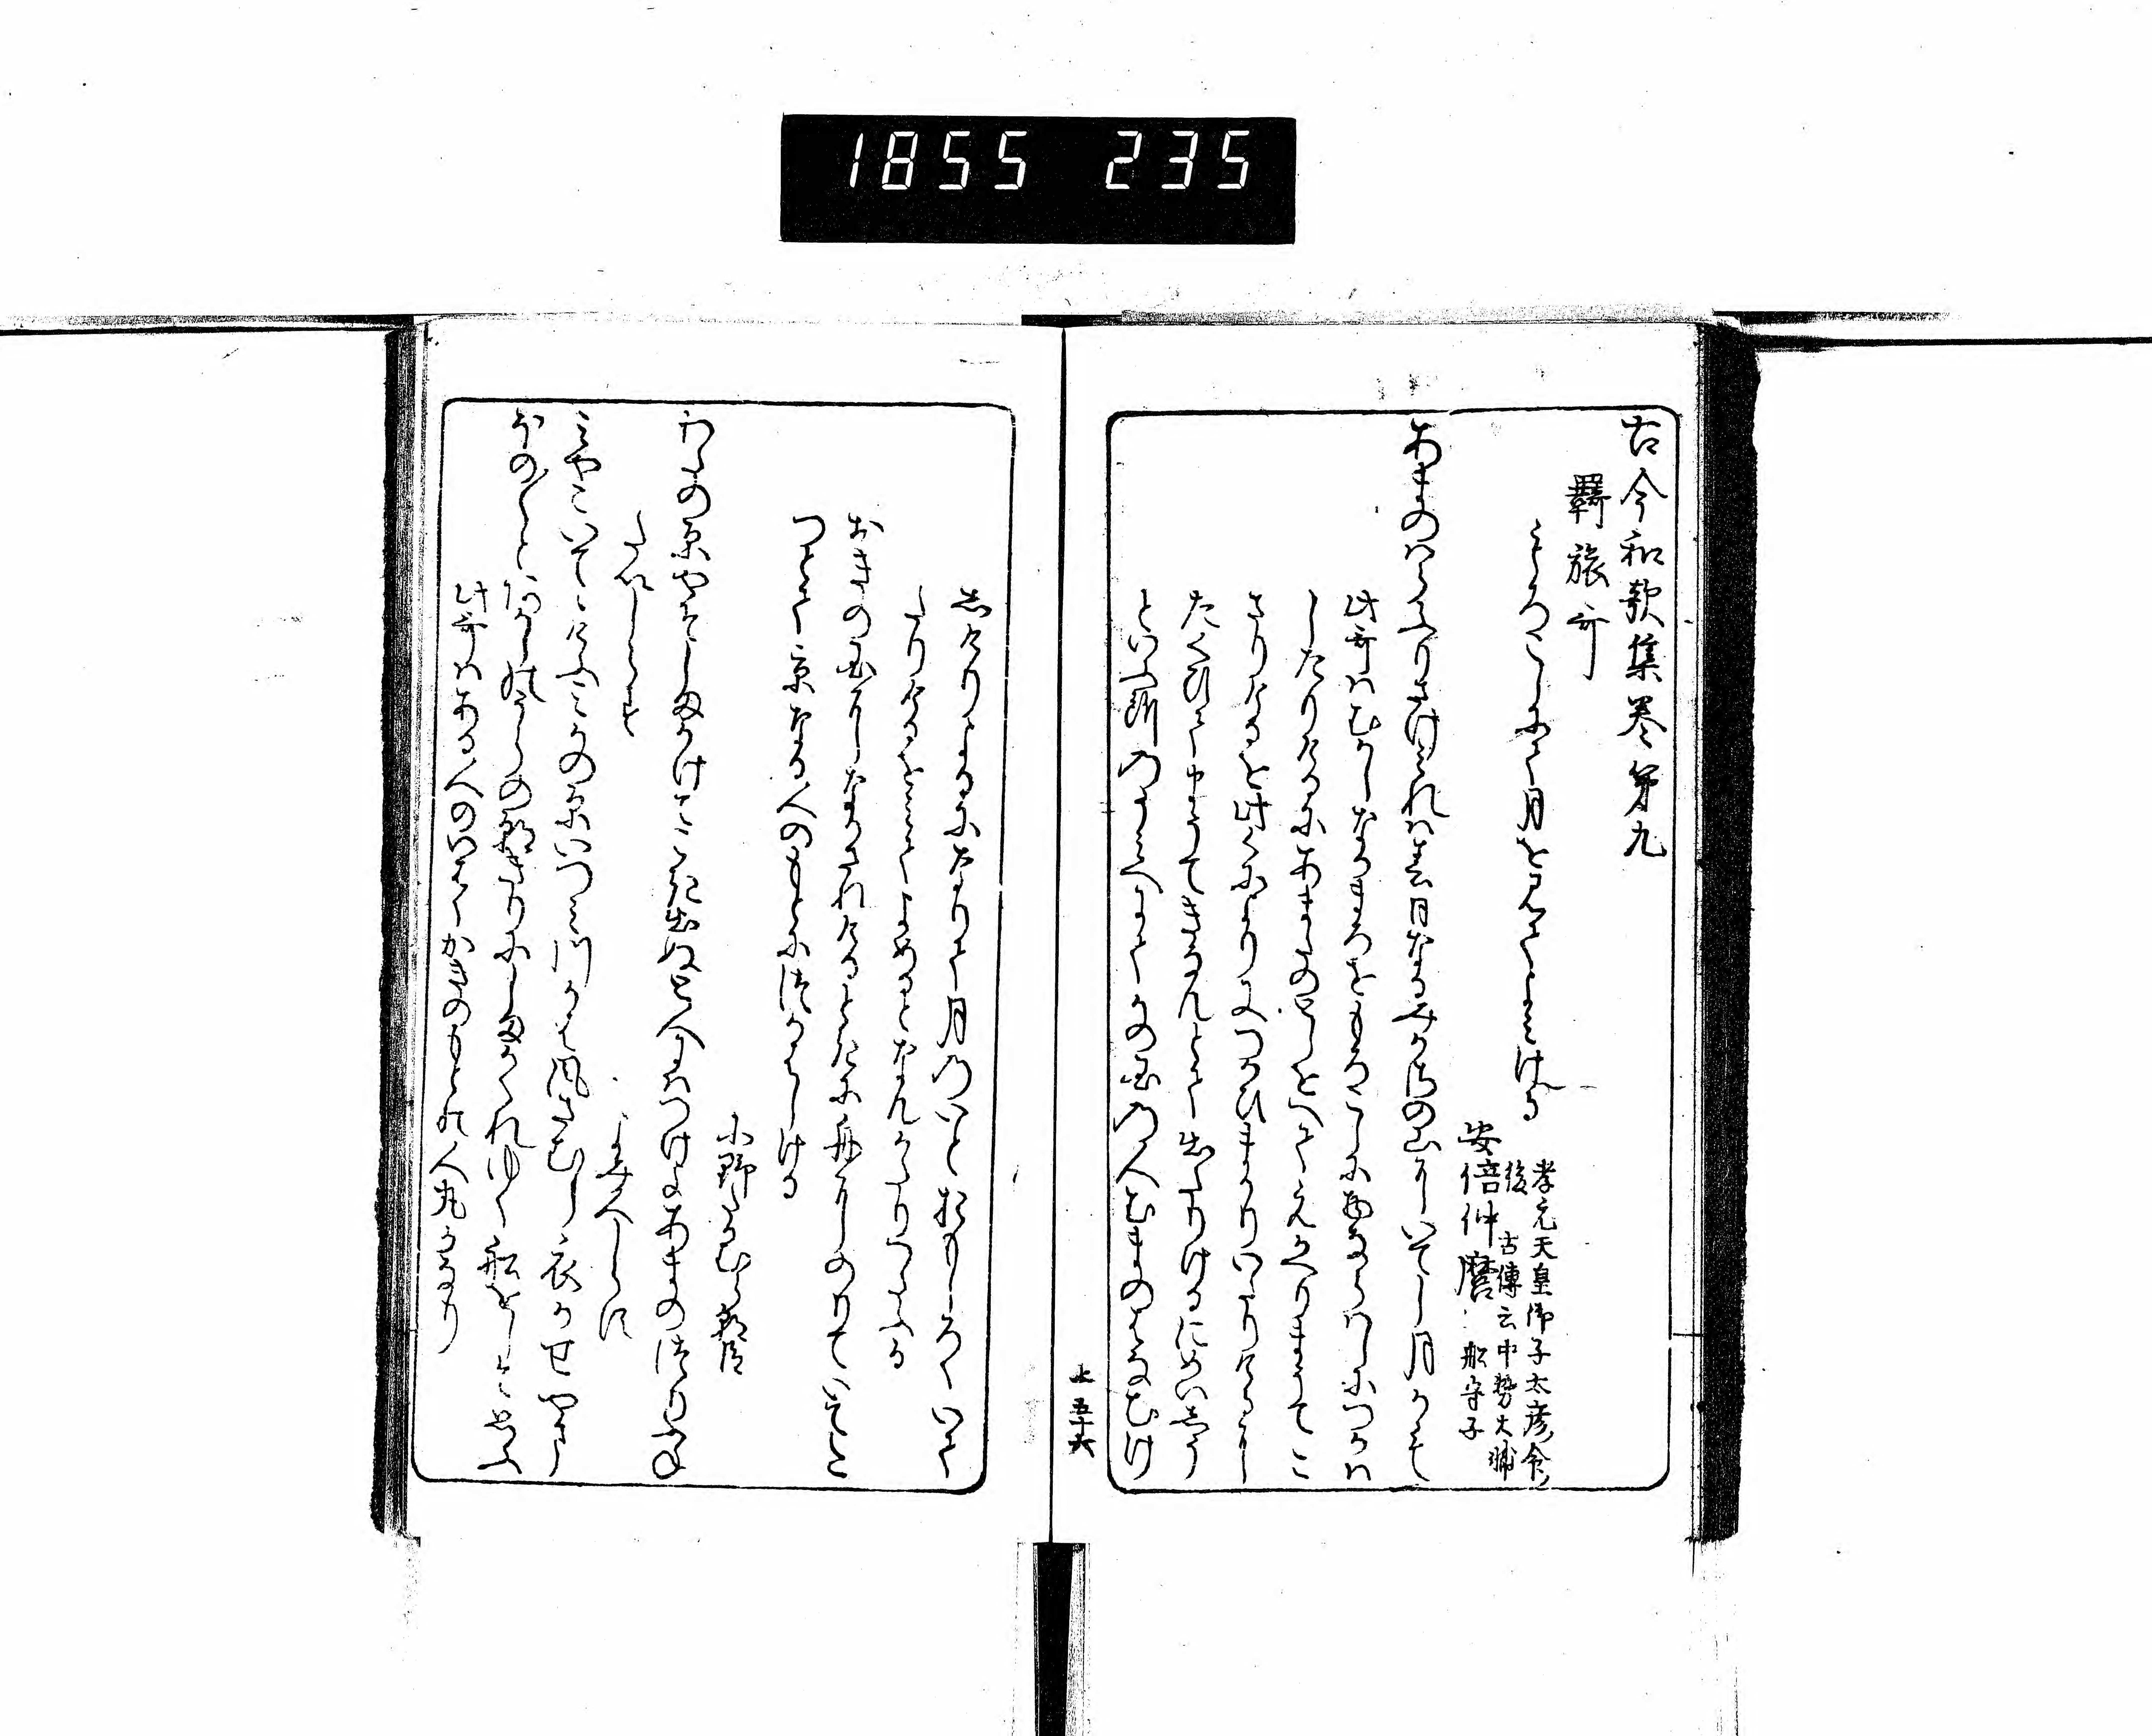 1855 235
古今和歌集巻第九
羇旅哥
もろこしにて月を見てよみける
孝元天皇御子太彦命
後
古傳云中務大輔
安倍仲麿
船守子
あまのはらふりさけみれは春日なるみかさの山にいてし月かも
此哥はむかしなかまろをもろこしに物ならはしにつかは
したりけるにあまたのとしをへてえかへりまうてこ
さりけるを此くにより又つかひまかりいたりけるに
たくひてまうてきなんとて出たりけるにめいしう
といふ所のうみへにてかの国の人むまのはなむけ
上 五十六
しけりよるになりて月のいとおもしろくいて
たりけるをみてよめるとなんかたりつたふる
おきの国にしなかされける時に舟にのりていたつ
とて京なる人のもとにつかはしける
小野たかむら朝臣
わたの原やそしまかけてこき出ぬと人にはつけよあまのつりふね
たいしらす
よみ人しらす
みやこいてゝけふみかの原いつみ川かは風さむし衣かせやま
ほの〳〵とあかしのうらの朝きりにしまかくれゆく船をしそ思ふ
此哥はある人のいはくかきのもとの人丸かなり